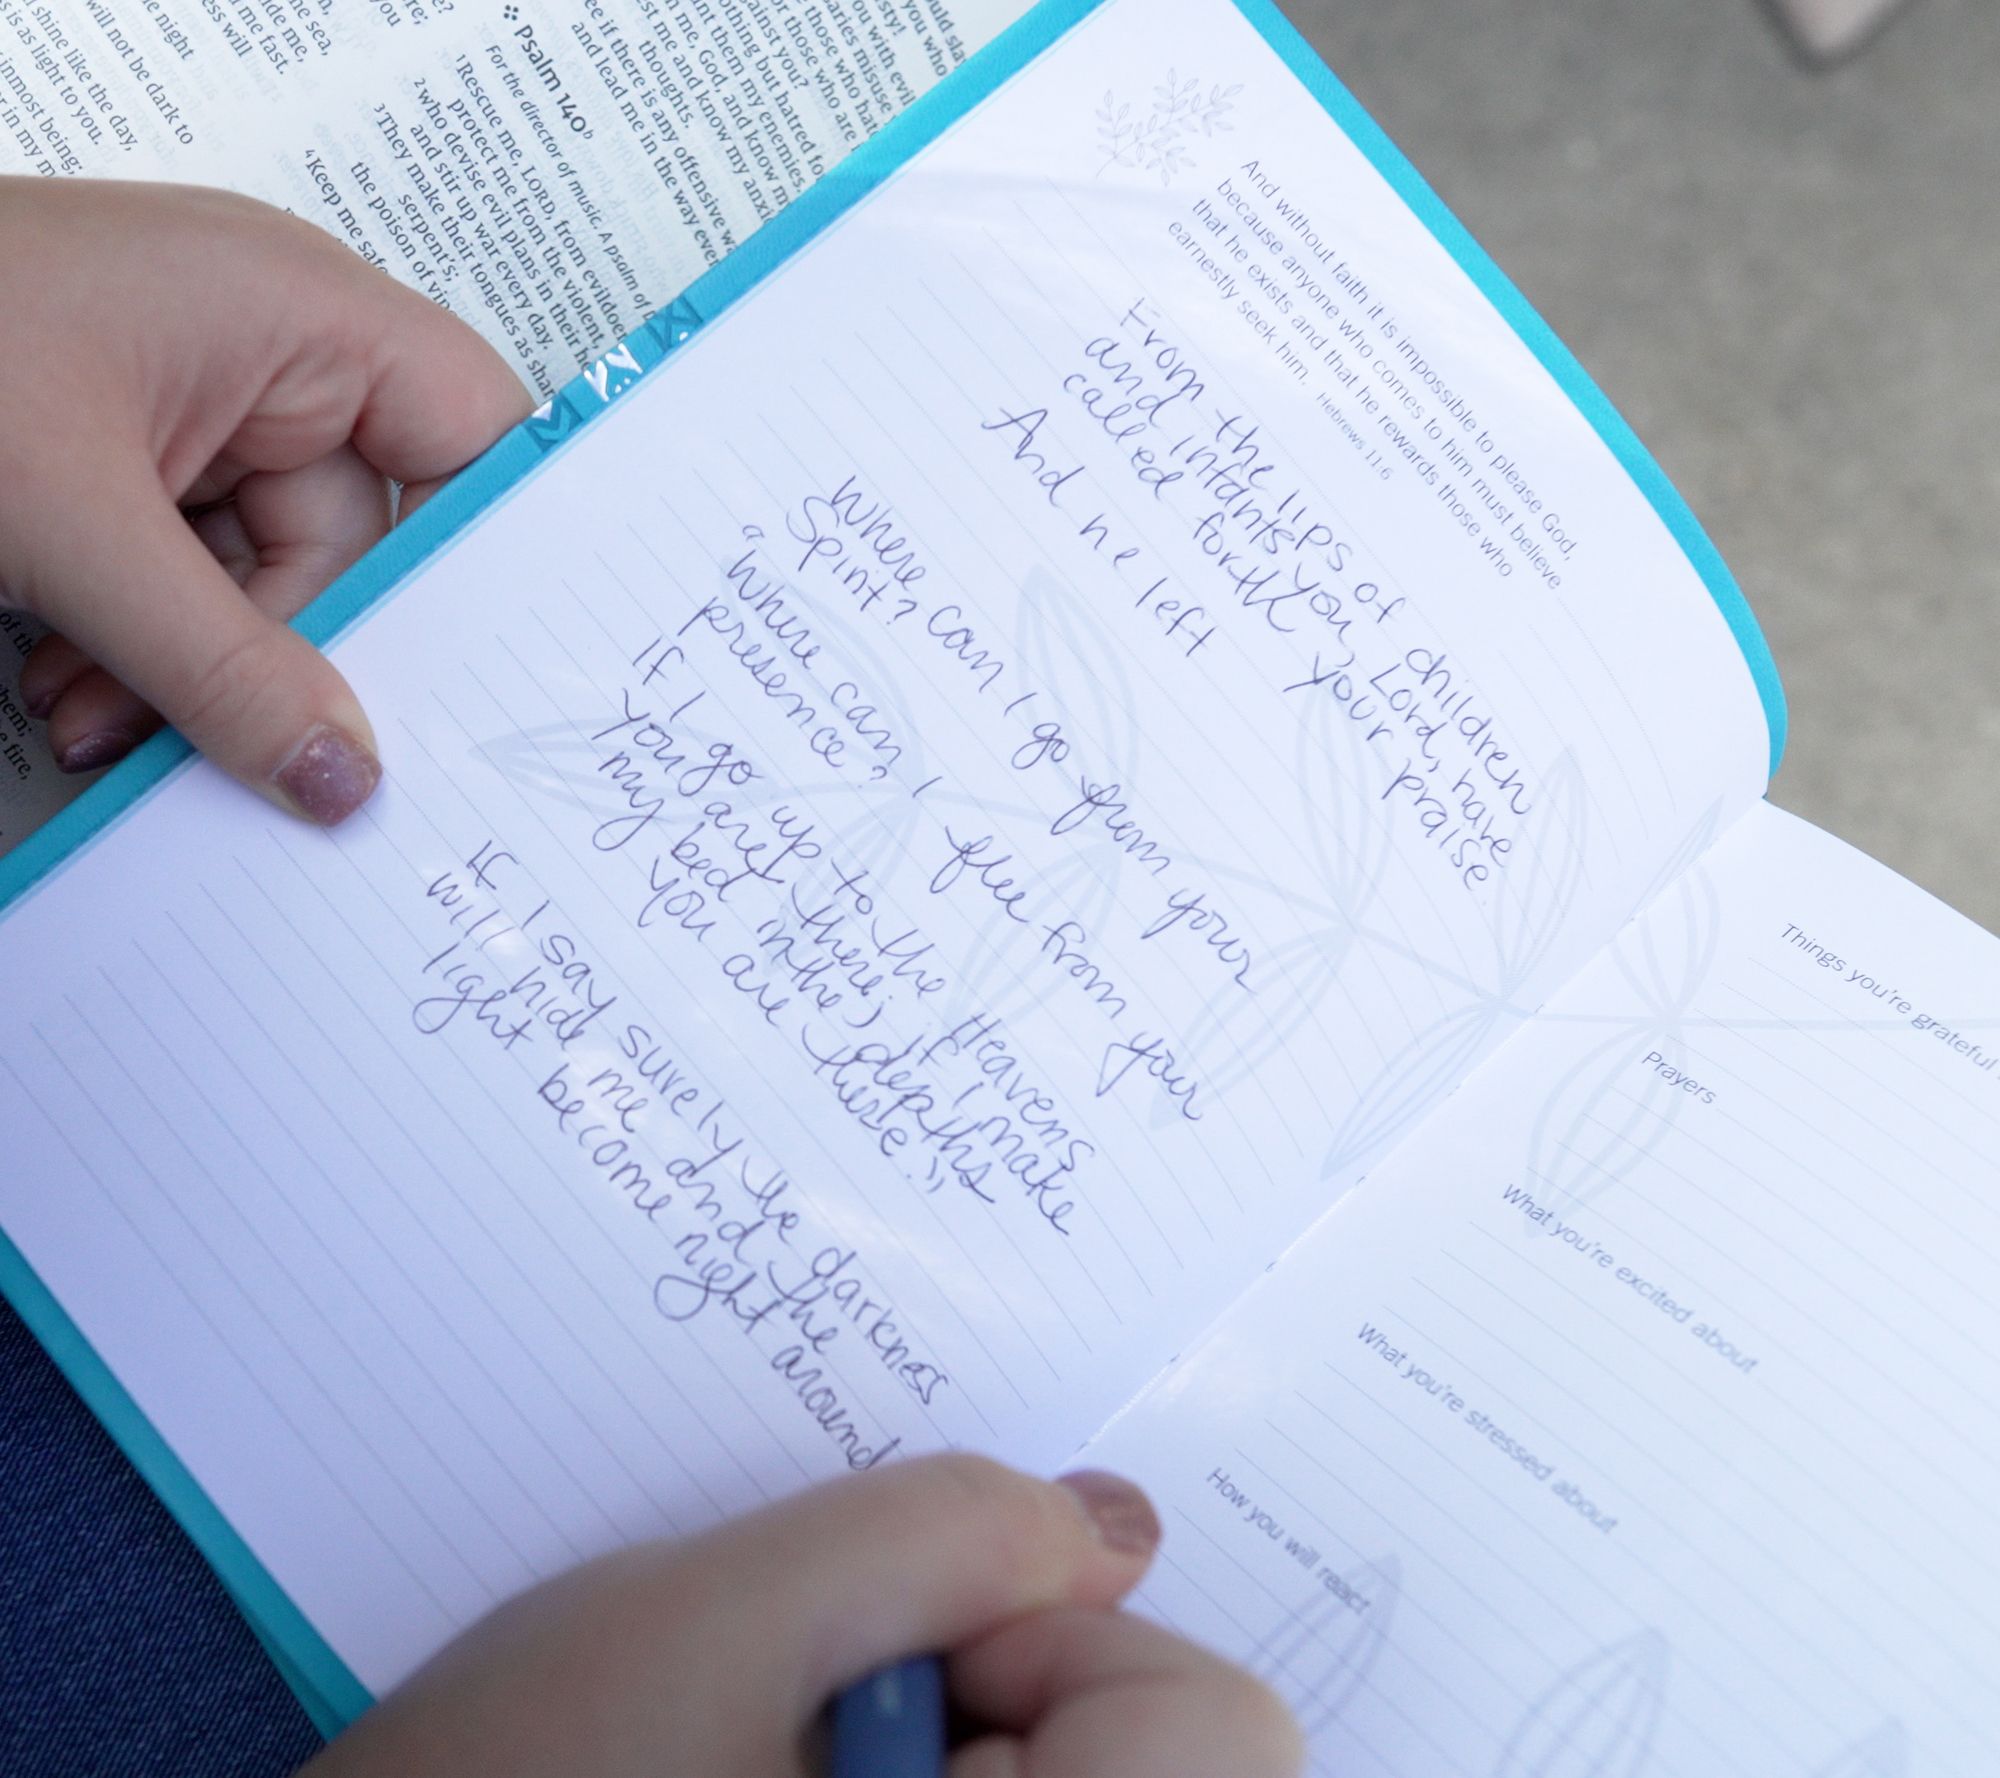 And without faith it is impossible to please God,
because anyone who comes to him must believe
that he exists and that he rewards those who
earnestly seek him. Hebrews 11:6
From the lips of children
and infants you, Lord, have
called forth your praise.
And he left
Where can I go from your
Spirit?
"Where can I flee from your
presence?
If I go up to the Heavens
you are there; if I make
my bed in the depths
you are there."
If I say surely the darkness
will hide me and the
light become night around
Things you're grateful
Prayers
What you're excited about
What you're stressed about
How you will react
Psalm 140b
For the director of music. A psalm of
1 Rescue me, LORD, from evildoers;
protect me from the violent,
2 who devise evil plans in their
and stir up war every day.
3 They make their tongues as sharp
serpent's;
the poison of
4 Keep me safe
you who
you with evil
misuse
those who
those who are
against you?
nothing but hatred
them my enemies.
me, God, and know my
me and know my
thoughts.
see if there is any offensive
and lead me in the way
the sea,
me fast.
will
the night
shine like the day,
is as light to you.
will not be dark to
inmost being;
in my
them;
fire,